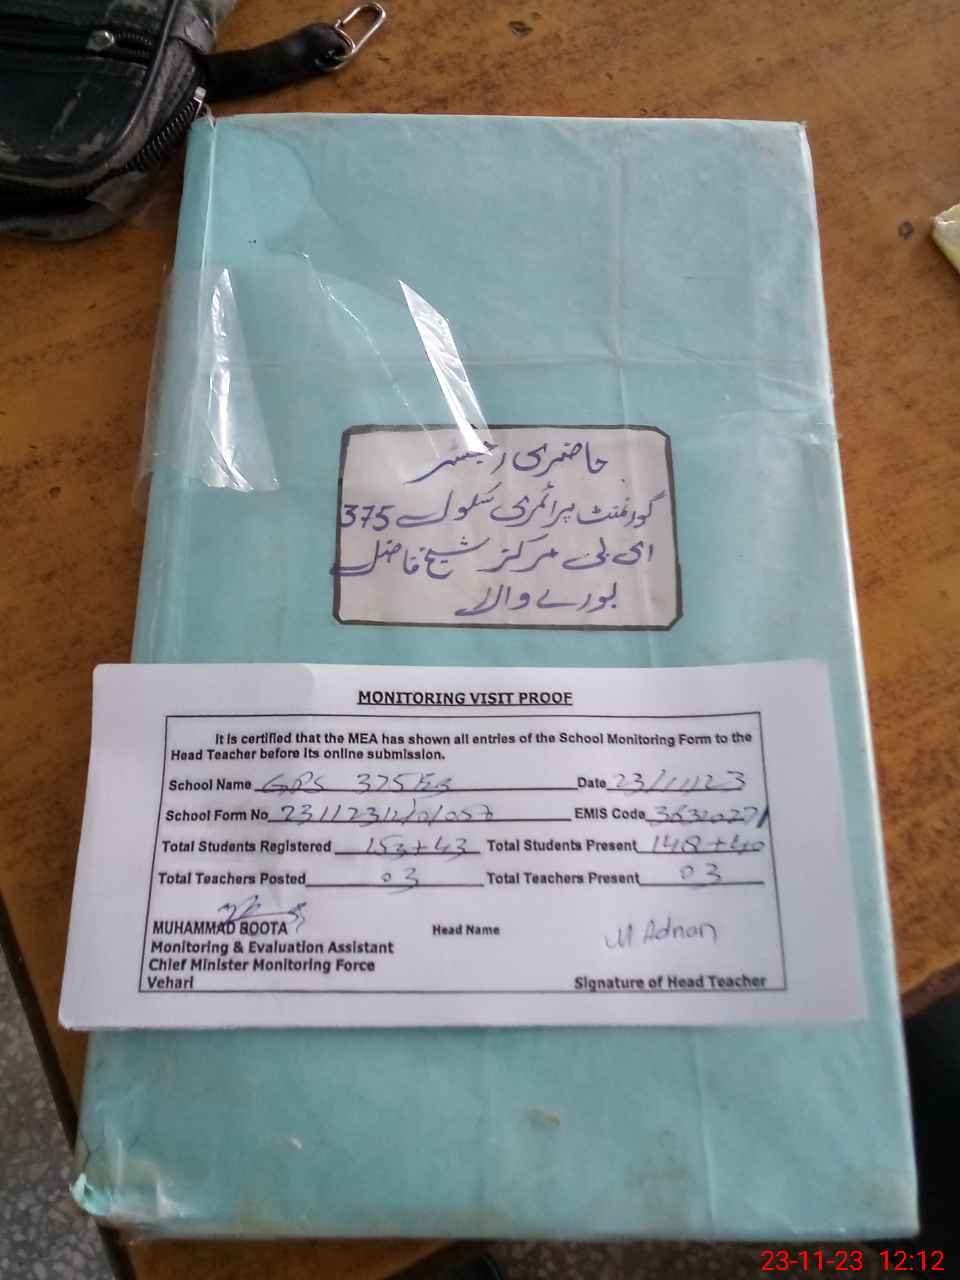 حاضری رجسٹر
گورنمنٹ پرائمری سکول 375
ای بی مرکز شیخ فاضل
بورے والا
MONITORING VISIT PROOF
It is certified that the MEA has shown all entries of the School Monitoring Form to the
Head Teacher before its online submission.
School Name GPS 375 EB Date 23/11/23
School Form No EMIS Code
Total Students Registered 153+43 Total Students Present 148+40
Total Teachers Posted 03 Total Teachers Present 03
MUHAMMAD BOOTA Head Name M Adnan
Monitoring & Evaluation Assistant
Chief Minister Monitoring Force
Vehari Signature of Head Teacher
23-11-23 12:12